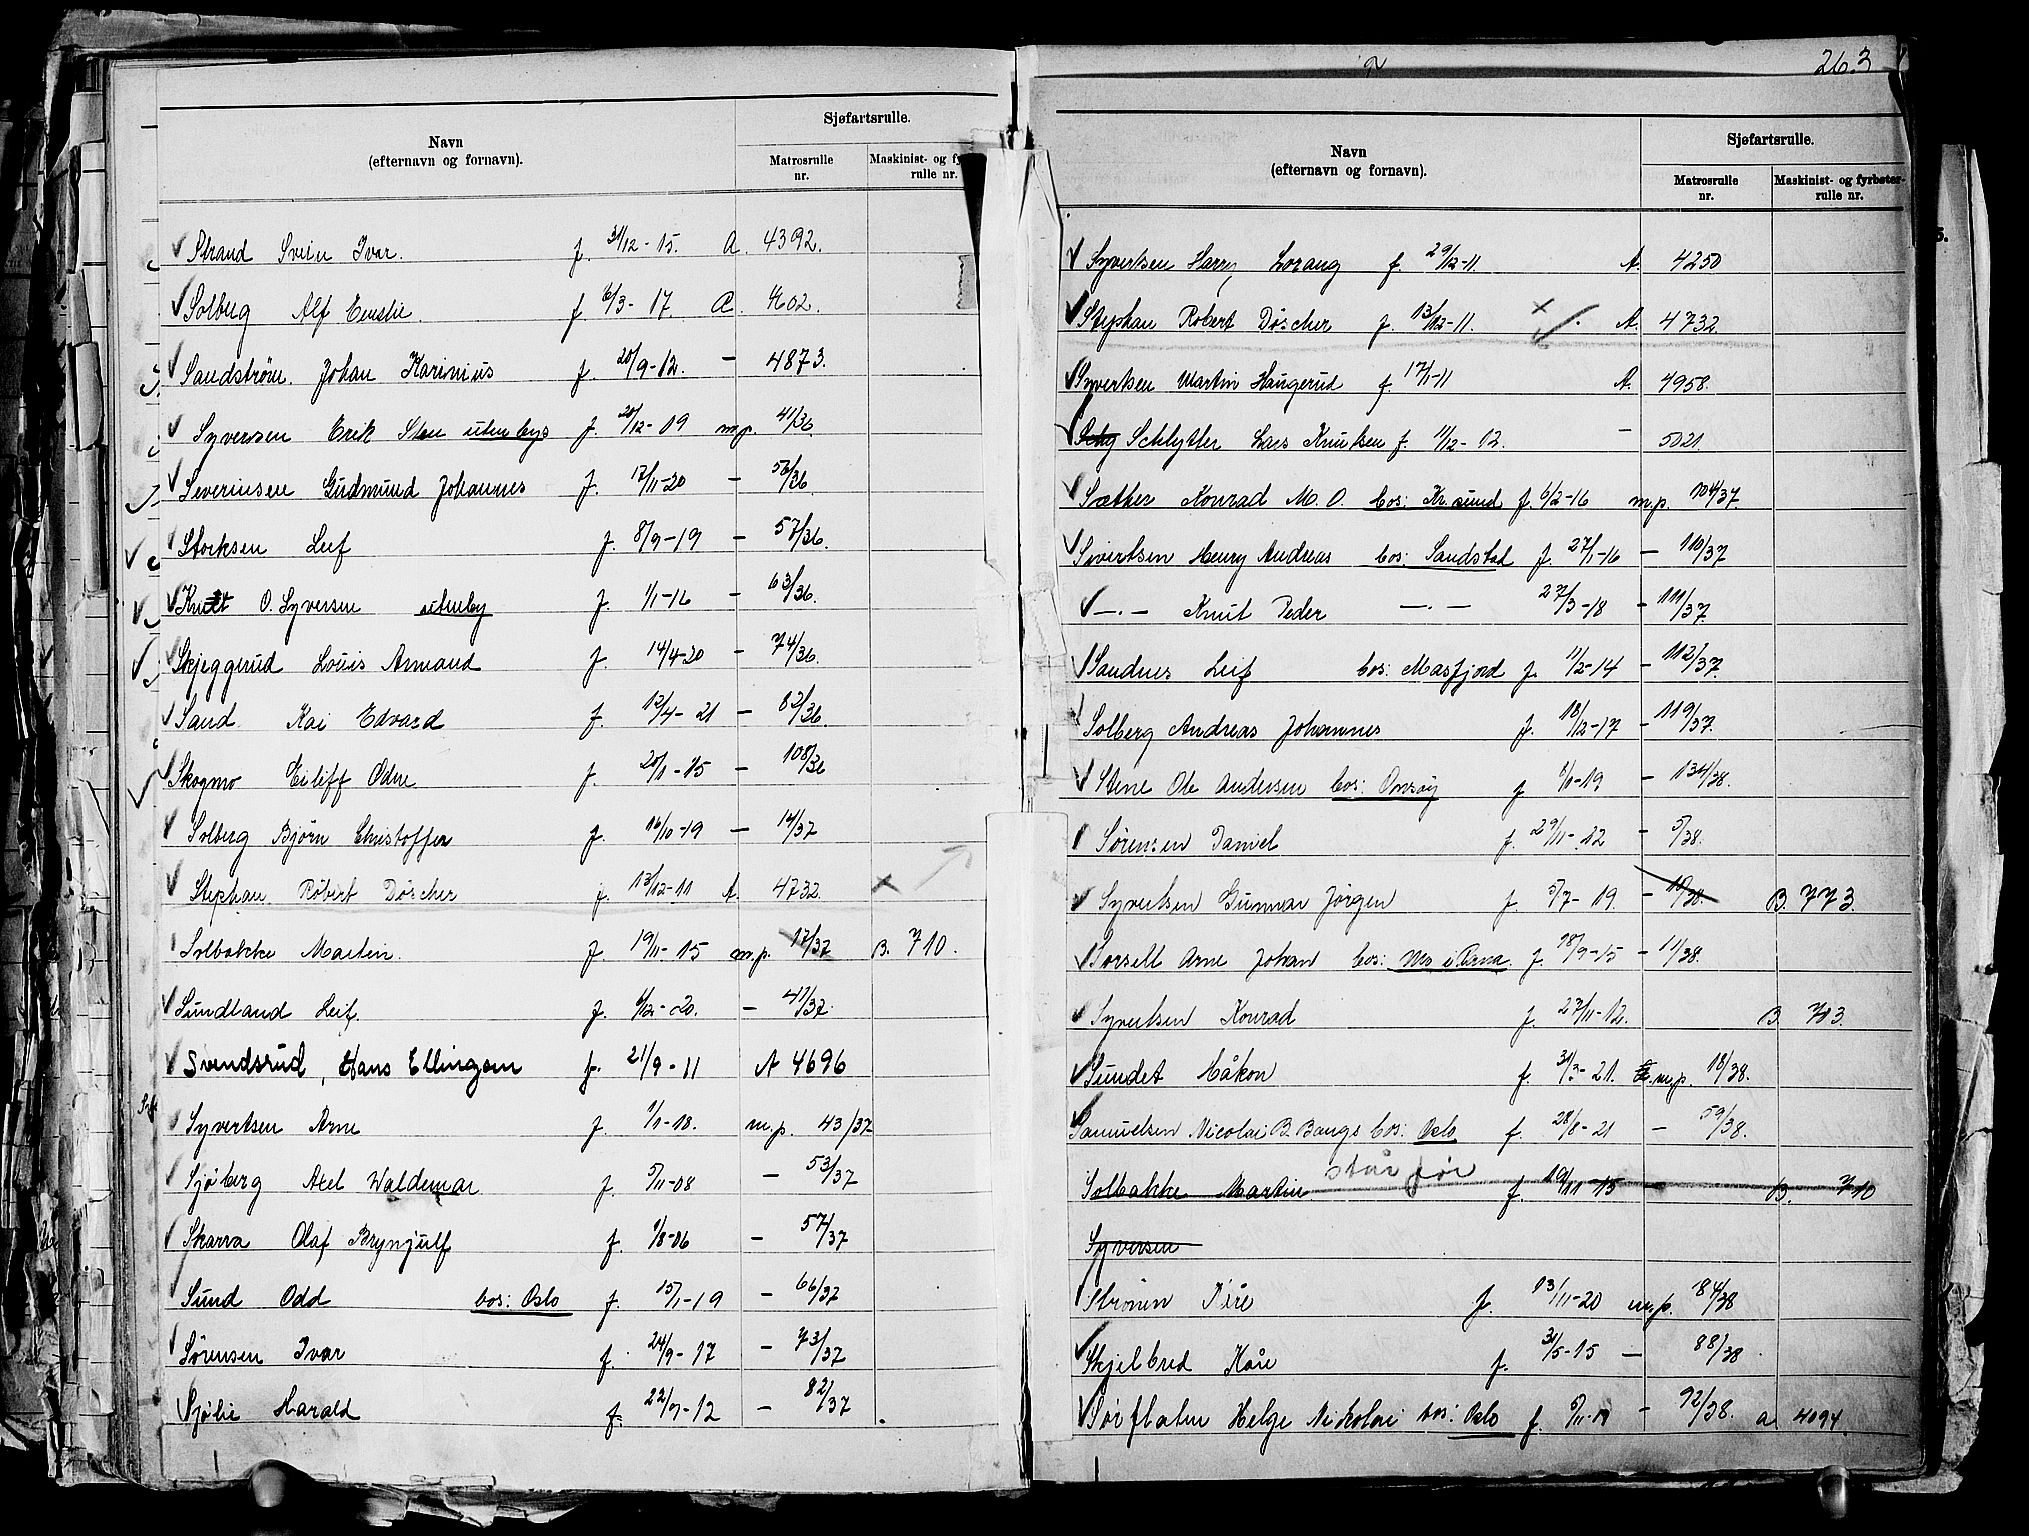 Navn
(efternavn og fornavn).
Sjøfartsrulle.
Matrosrulle
nr.
Maskinist- og fy
rulle nr.
Strand Svein Ivar. f. 31/12-15. A. 4392.
Solberg Alf f 6/3-17. A. 4602.
Sandstrøm. Johan Karinius f. 20/9-12. — 4873.
Syversen Erik Sten utenbys f. 20/12-09 m.p. 41/36.
Severinsen Gudmund Johannes f. 17/11-20 — 56/36.
Storksen Leif f. 8/9-19 — 57/36.
Knut O. Syversen utenby f. 1/1-16 — 63/36.
Skjeggerud Louis Armand f. 14/4-20 — 74/36.
Sand Kai Edvard f. 12/4-21 — 82/36.
Skogmo Eiliff Odne f. 20/1-15 — 108/36
Solberg Bjørn Christoffer f. 16/10-19 — 14/37
Stephan Robert Döscher f. 13/12-11 A. 4732. x
Solbakke Martin. f. 19/11-15 m.p. 17/37 B. 710.
Sundland Leif. f. 6/12-20. — 41/37.
Svendsrud, Hans Ellingsen f. 21/9-11 A 4696
Syvertsen Arne f. 1/1-18. m.p. 43/37
Sjøberg Axel Waldemar f. 5/11-08 — 53/37
Skarra Olaf Brynjulf f. 1/8-06 — 57/37
Sund Odd bos: Oslo f. 15/1-19 — 66/37
Sørensen Ivar f. 24/9-17 — 73/37
Sjølie Harald f. 22/7-12 — 82/37
263
Navn
(efternavn og fornavn).
Sjøfartsrulle.
Matrosrulle
nr.
Maskinist- og fyrbøter-
rulle nr.
Syvertsen Harry Lorang f. 29/12-11. A. 4250
Stephan Robert Döscher f. 13/12-11. x A. 4732.
Syvertsen Martin Haugerud f. 17/1-11 A. 4958.
Schy Schlytter Lars Knutsen f. 11/12-12. — 5021.
Sæther Konrad M. O. bos: Kr.sund f. 6/2-16 m.p. 104/37.
Sivertsen Henry Andreas bos: Sandstad f. 27/1-16 — 110/37
—.— Knut Peder —.— 27/3-18 — 111/37.
Sandnes Leif bos: Masfjord f. 11/2-14 — 112/37.
Solberg Andreas Johannes f. 18/12-17 — 119/37.
Stene Ole Andersen bos: Onsøy f 8/1-19 — 134/38.
Sørensen Daniel f. 29/11-12 — 5/38.
Syvertsen Gunnar Jørgen f. 5/7-19. — 10/38. B. 773.
Sorsell Arne Johan bos: f. 18/9-15 — 11/38.
Syvertsen Konrad f. 27/11-12. B. 713.
Sundet Håkon f. 31/3-21. m.p. 18/38.
Samuelsen Nicolai B. Bangs bos: Oslo f. 28/8-21 — 59/38.
står før
Solbakke Martin f. 19/11-15 — B. 710
Syversen
f. 13/11-20 m.p. 84/38
Skjelbred Kåre f. 31/5-15 — 88/38.
Sørflaten Helge Nickolai bos: Oslo f. — 92/38. a 4094.